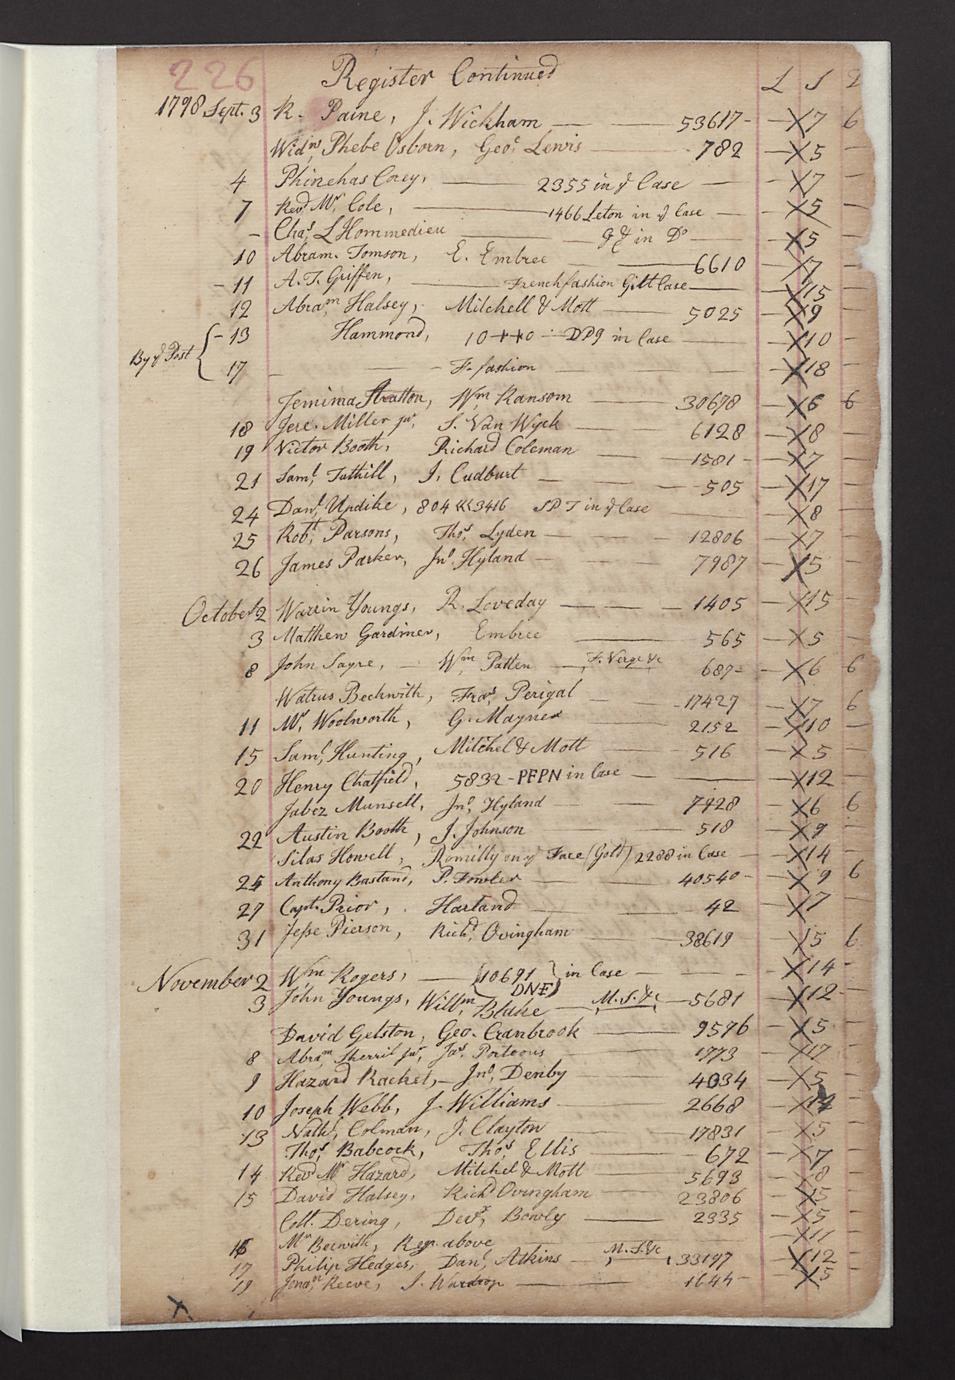 226 Register Continued L S D
1798 Sept. 3 R. Paine, J. Wickham — — 53617- — X 7 6
Widw. Phebe Osborn, Geo. Lewis — 782 — X 5 —
4 Phinehas Corey, — 2355 in ye Case — X 7 —
7 Revd. Mr. Cole, — 1466 Leton in ye Case — X 5 —
- Chas. L Hommedieu — in Do — X 5 —
10 Abram. Tomson, E. Embree — 6610 X 7 —
- 11 A. T. Griffen, — French fashion Gilt Case — X 15 —
12 Abram Halsey, Mitchell & Mott — 5025 X 9 —
By ye Post { - 13 Hammond, 10 ++0 — DP9 in Case — X 10 —
17 — — F. fashion — X 18 —
Jemima Stratton, Wm Ransom — 30678 — X 6 6
18 Jere. Miller jur. S. Van Wyck — 6128 — X 8 —
19 Victor Booth, Richard Coleman — 1581 — X 7 —
21 Saml. Tuthill, J. Cudburt — 505 — X 17 —
24 Danl. Updike, 804 3416 SPT in ye Case — X 8 —
25 Robt. Parsons, Thos. Lyden — 12806 — X 7 —
26 James Parker, Jno. Hyland — 7987 — X 5 —
October 2 Warrin Youngs, R. Loveday — — 1405 — X 15 —
3 Matthew Gardiner, Embree — 565 — X 5 —
8 John Sayre, — Wm Patten — F. Verge &c 687= — X 6 6
Watrus Beckwith, Fras. Perigal — 17427 — X 7 6
11 Mr. Woolworth, G. Mayner — 2152 — X 10 —
15 Saml. Hunting, Mitchel & Mott — 516 — X 5 —
20 Henry Chatfield, 5832 - PFPN in Case — X 12 —
Jabez Munsell, Jno. Hyland — 7428 — X 6 6
22 Austin Booth, J. Johnson — 518 — X 9 —
Silas Howell, Romilly on ye Face (Gold) 2288 in Case — X 14 —
25 Anthony Bastand, P. Fowler — 40540 — X 9 6
27 Capt. Prior, Harland — 42 — X 7 —
31 Jesse Pierson, Richd. Ovingham — 38619 — X 5 6
November 2 Wm Rogers, — (10691 DNE) in Case — X 14 —
3 John Youngs, Willm Blake — M. S. &c — 5681 — X 12 —
David Gelston, Geo. Cranbrook — 9576 — X 5 —
8 Abram Sherril jur, Jas. Porteous — 1773 — X 17 —
9 Hazard Racket, — Jno. Denby — 4034 — X 5 —
10 Joseph Webb, J. Williams — 2668 — X 14 —
13 Nathl. Colman, J. Clayton — 17831 — X 5 —
Thos. Babcock, Thos. Ellis — 672 — X 7 —
14 Revd. Mr. Hazard, Mitchel & Mott — 5693 — X 8 —
15 David Halsey, Richd. Ovingham — 23806 — X 5 —
Coll. Dering, Devx. Bowly — 2335 — X 5 —
16 Mr. Becwith, Regr. above — X 11 —
17 Philip Hedges, Danl. Atkins — M. S. &c 33197 — X 12 —
19 Jonan. Reeve, J. Wardrop — 1644 — X 5 —
X